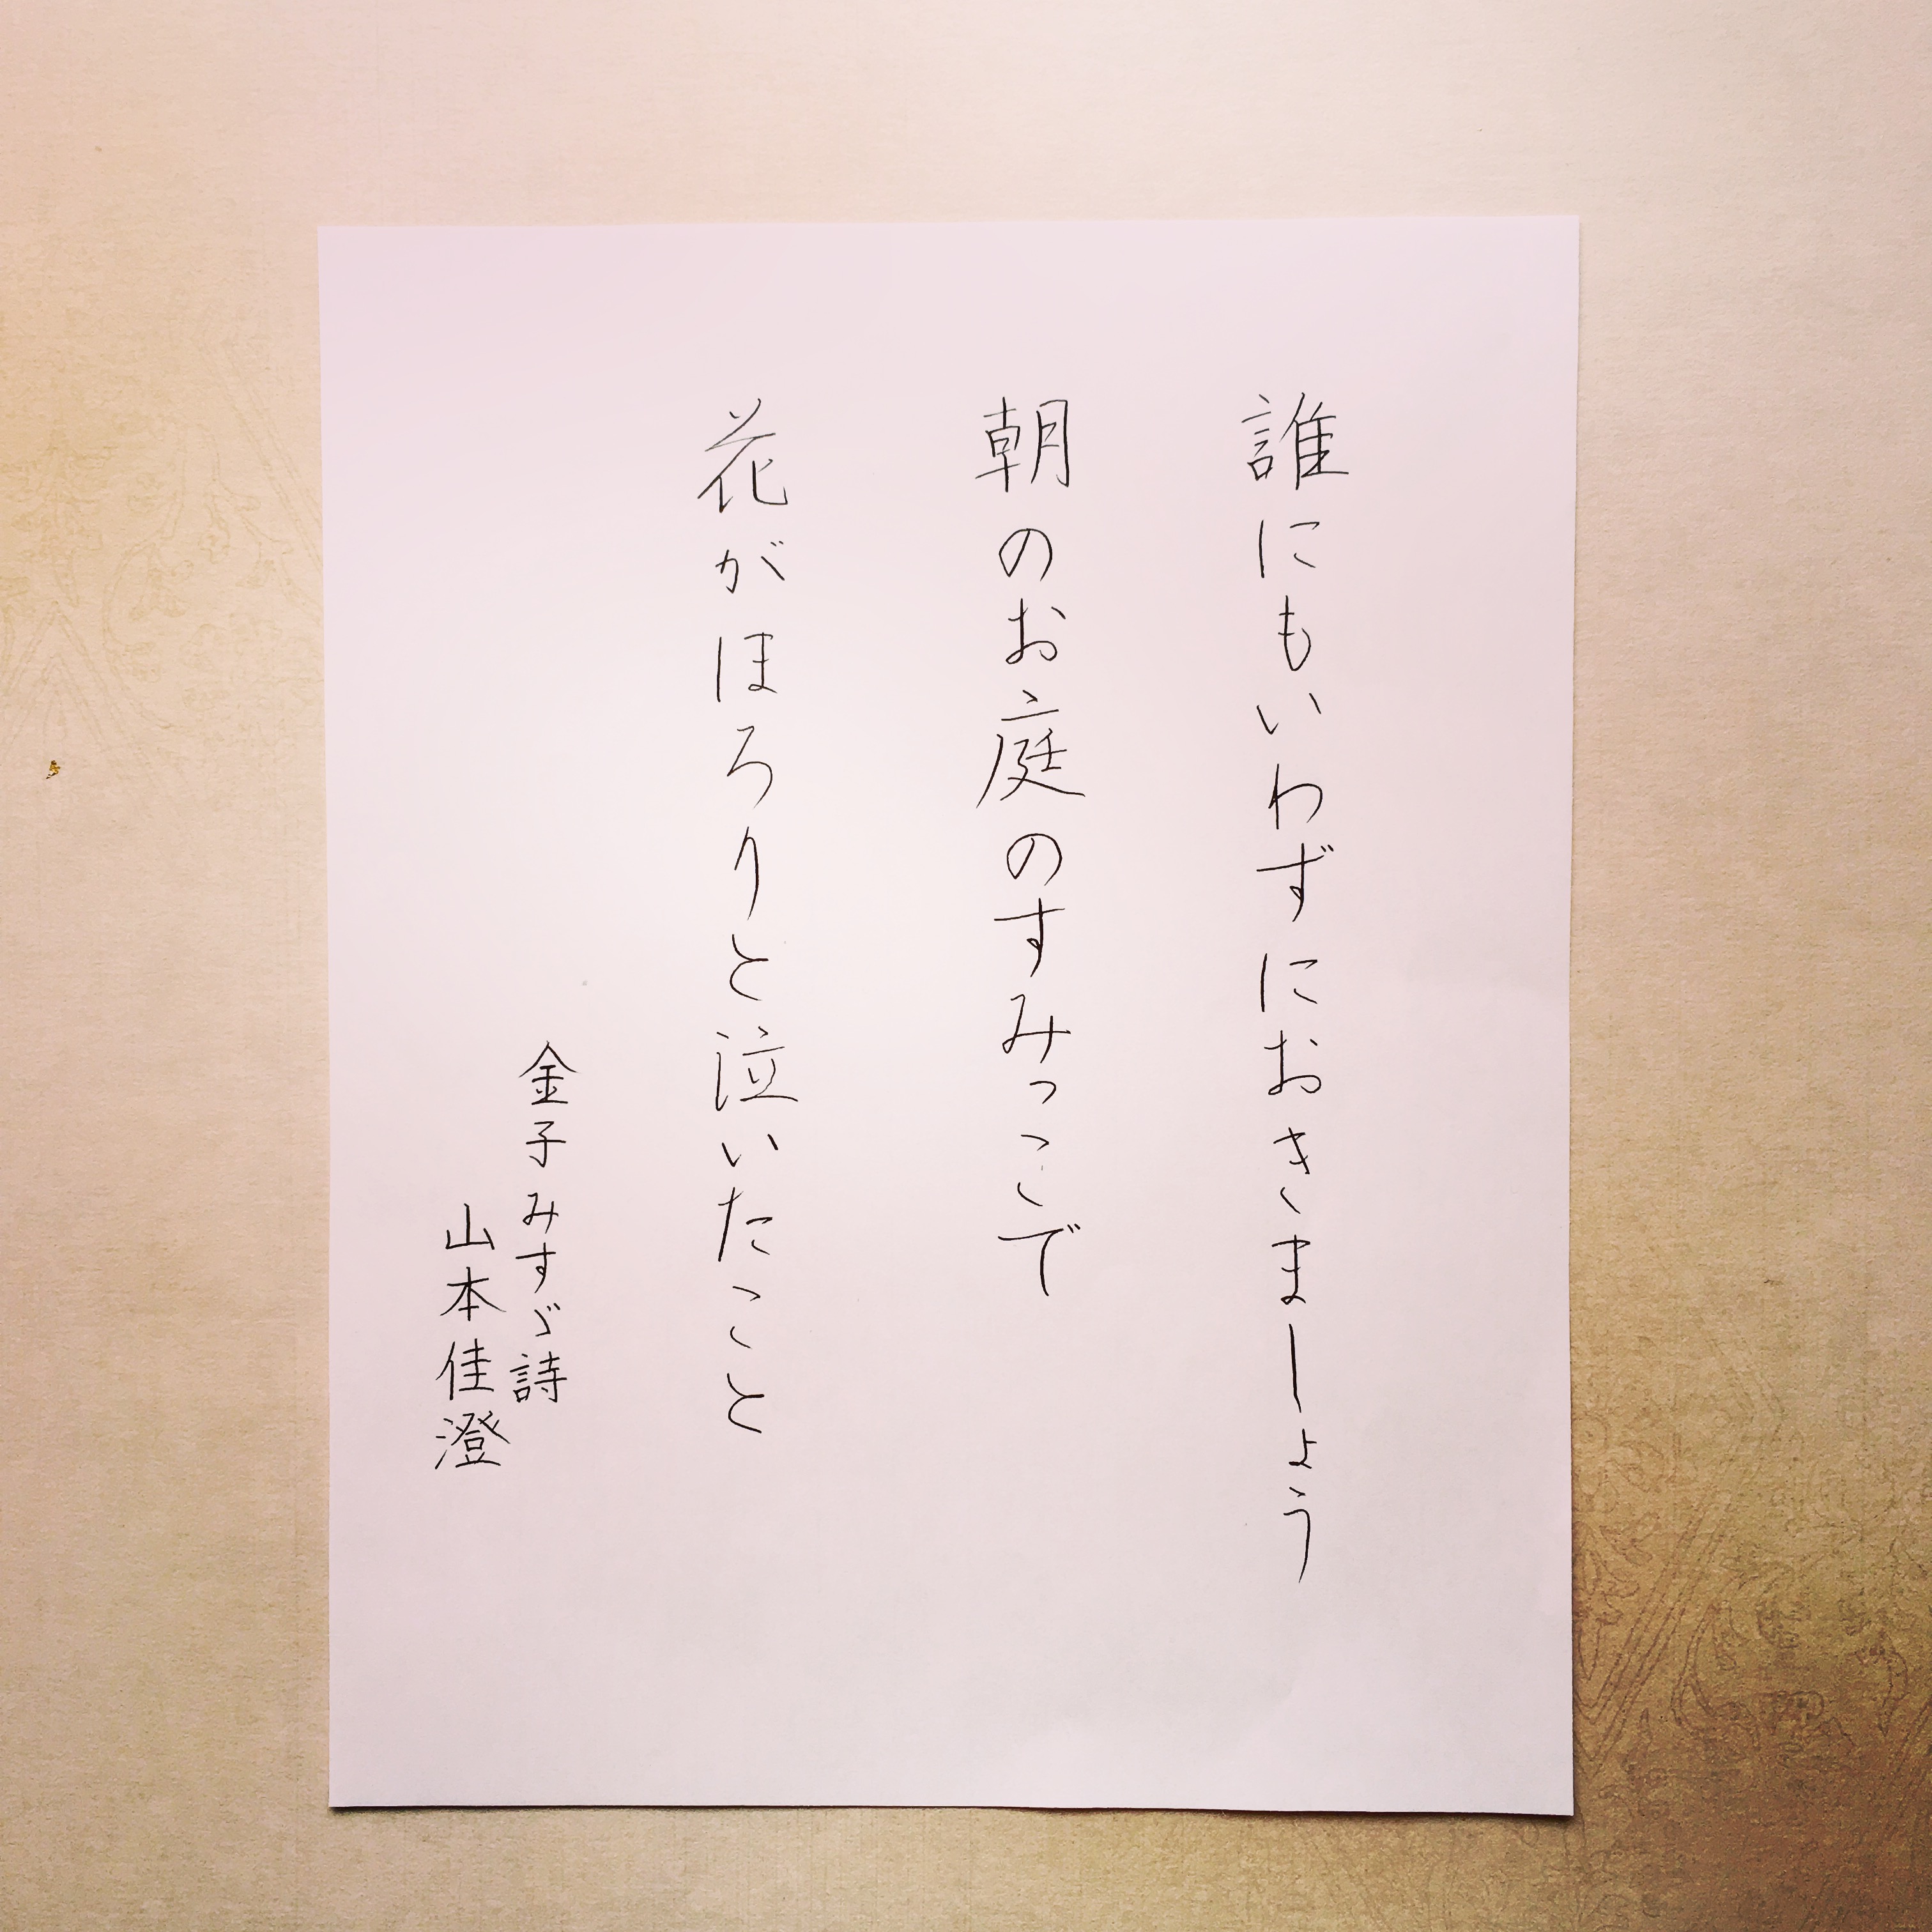 誰にもいわずにおきましょう
朝のお庭のすみっこで
花がほろりと泣いたこと
金子みすゞ詩
山本佳澄